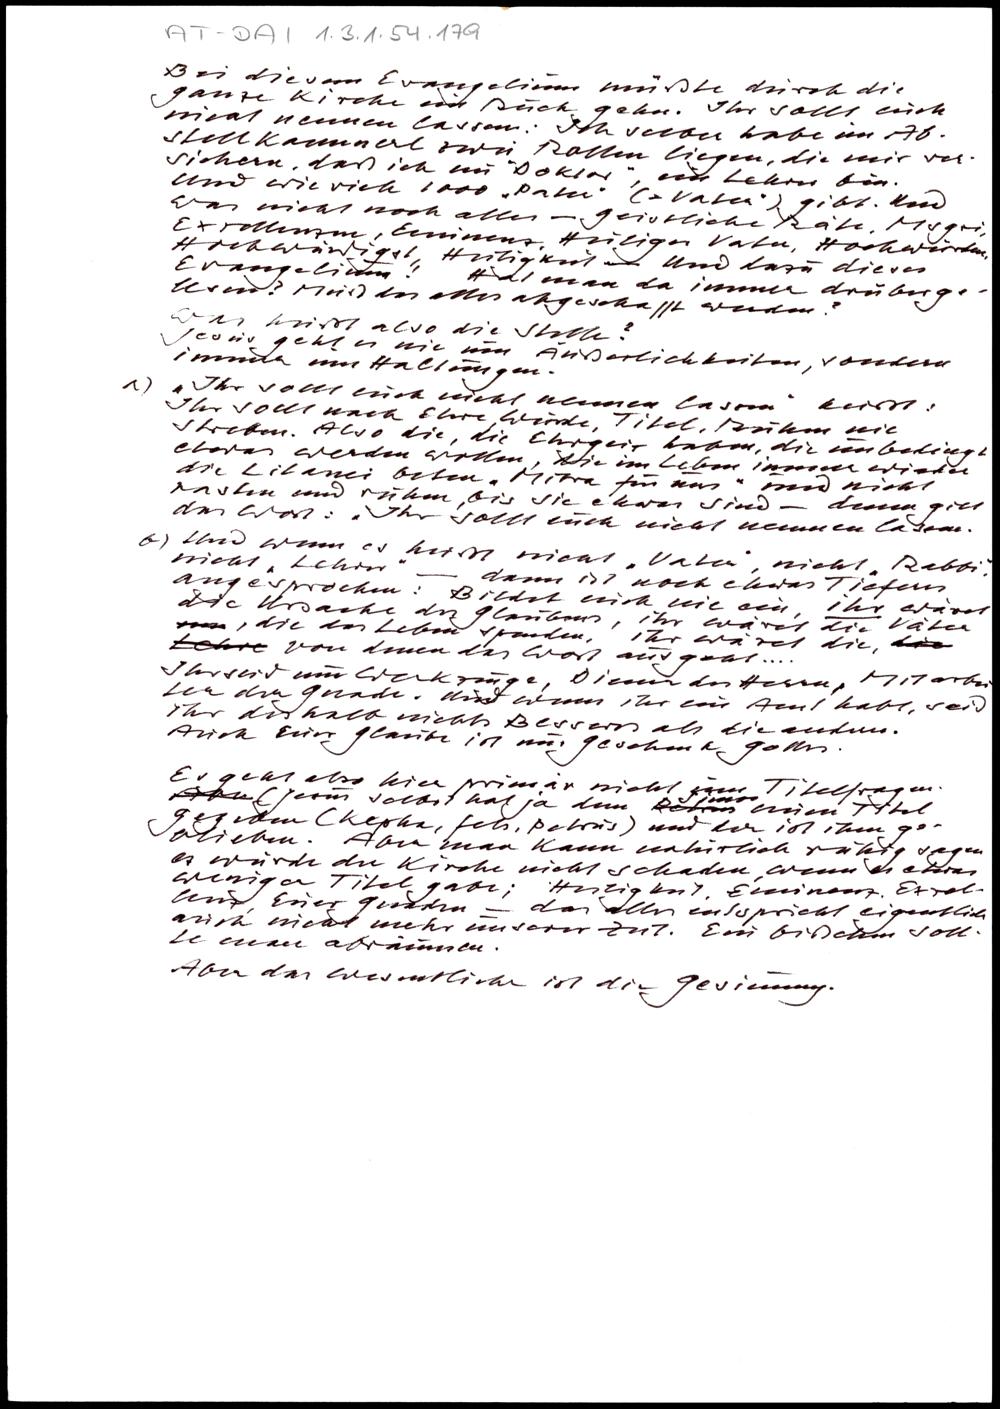 AT-DAI 1.3.1.54.179
Bei diesem Evangelium müßte durch die
ganze Kirche ein Ruck gehn. Ihr sollt euch
nicht nennen lassen: Ich selber habe im Ab-
stellkammerl zwei Rollen liegen, die mir ver-
sichern, daß ich ein "Doktor", ein Lehrer bin.
Und wie viele 1000 "Pater" (= Vater) gibt. Und
was nicht noch alles — geistliche Räte, Msgri,
Exzellenzen, Eminenz, Heiliger Vater, Hochwürden,
Hochwürdigst, Heiligkeit — Und dazu dieses
Evangelium! Hat man da immer drüberge-
lesen? Muß das alles abgeschafft werden?
Was heißt also die Stelle?
Jesus geht es nie um Äußerlichkeiten, sondern
immer um Haltungen.
a) „Ihr sollt euch nicht nennen lassen" heißt:
Ihr sollt nach Ehre, Würde, Titel, Ruhm nie
streben. Also die, die Ehrgeiz haben, die unbedingt
etwas werden wollen, die im Leben immer wieder
die Litanei beten „Mitra für uns" und nicht
rasten und ruhen, bis sie etwas sind — denen gilt
das Wort: „Ihr sollt euch nicht nennen lassen.
b) Und wenn es heißt nicht „Vater", nicht „Rabbi",
nicht „Lehrer" — dann ist noch etwas Tieferes
angesprochen: Bildet euch nie ein, ihr wäret
die Ursache des Glaubens, ihr wäret die Väter
, die das Leben spenden, ihr wäret die, die
Lehre von denen das Wort ausgeht....
Ihr seid nur Werkzeuge, Diener des Herrn, Mitarbei
ter der Gnade. Und wenn ihr ein Amt habt, seid
ihr deshalb nichts Besseres als die andern.
Auch Euer Glaube ist nur Geschenk Gottes.
Es geht also hier primär nicht um Titelfragen.
(Jesus selbst hat ja dem Petrus Simon einen Titel
gegeben (Kepha, Fels, Petrus) und der ist ihm ge-
blieben. Aber man kann natürlich ruhig sagen
es würde der Kirche nicht schaden, wenn es etwas
weniger Titel gäbe; Heiligkeit, Eminenz, Exzel-
lenz, Euer Gnaden — das alles entspricht eigentlich
auch nicht mehr unserer Zeit. Ein bißchen soll-
te man abräumen.
Aber das Wesentliche ist die Gesinnung.